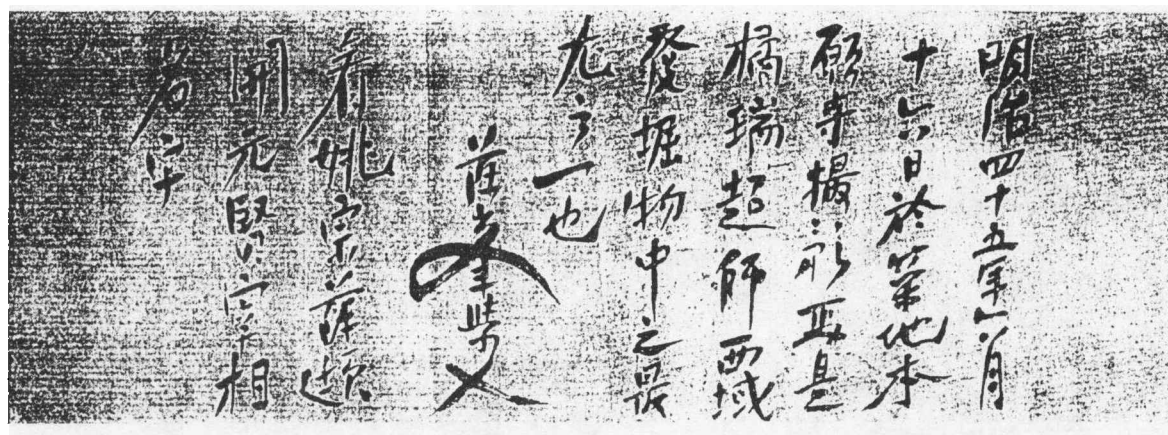 明治四十五年六月
十六日於築地本
願寺撮影是
橘瑞超師西域
發掘物中之最
尤之一也
看姚宗薛
開元賢宰相
若干